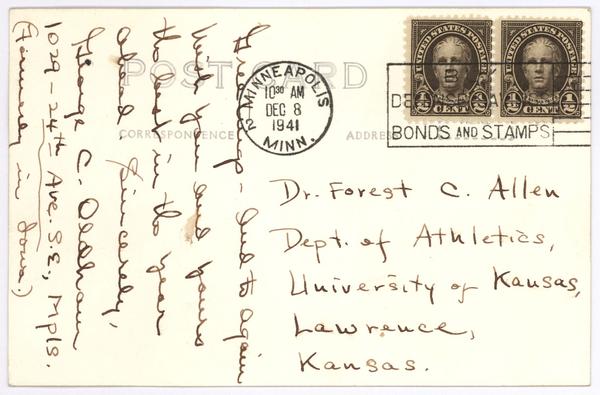 POST CARD
CORRESPONDENCE
ADDRESS
MINNEAPOLIS 2
10³⁰ AM
DEC 8
1941
MINN.
UNITED STATES POSTAGE
1/2 CENT 1/2
UNITED STATES POSTAGE
1/2 CENT 1/2
BONDS AND STAMPS
Greetings - and to again
wish you and yours
the best in the year
ahead. Sincerely,
George C. Oldham
1029-24th Ave. S.E., Mpls.
(Formerly in Iowa.)
Dr. Forest C. Allen
Dept. of Athletics,
University of Kansas,
Lawrence,
Kansas.